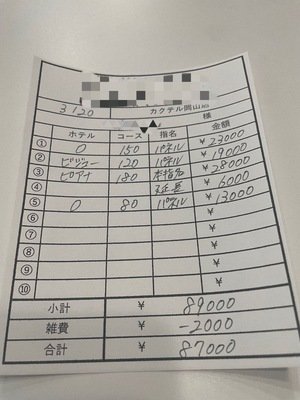 3120 カクテル岡山店
様
ホテル コース 指名 金額
① 0 150 パネル ¥23000
② ビジュー 120 パネル ¥19000
③ ピアナ 180 本指名 ¥28000
④ 延長 ¥6000
⑤ 0 80 パネル ¥13000
⑥ ¥
⑦ ¥
⑧ ¥
⑨ ¥
⑩ ¥
小計 ¥ 89000
雑費 ¥ -2000
合計 ¥ 87000